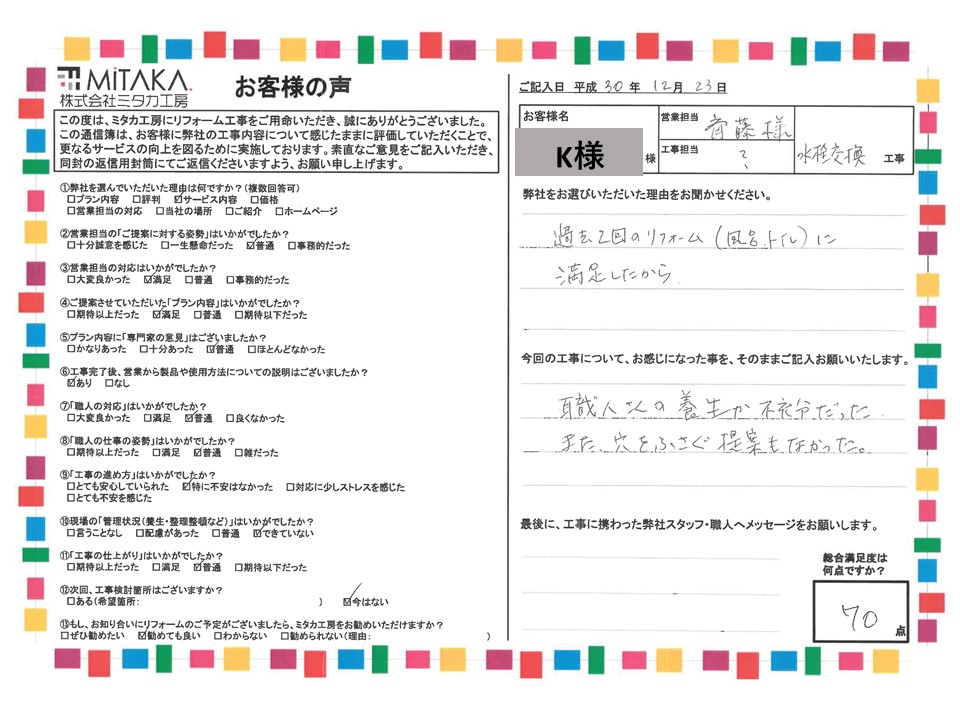 MiTAKA
株式会社ミタカ工房
お客様の声
この度は、ミタカ工房にリフォーム工事をご用命いただき、誠にありがとうございました。
この通信簿は、お客様に弊社の工事内容について感じたままに評価していただくことで、
更なるサービスの向上を図るために実施しております。素直なご意見をご記入いただき、
同封の返信用封筒にてご返信くださいますよう、お願い申し上げます。
①弊社を選んでいただいた理由は何ですか？(複数回答可)
□プラン内容 □評判 ☑サービス内容 □価格
□営業担当の対応 □当社の場所 □ご紹介 □ホームページ
②営業担当の「ご提案に対する姿勢」はいかがでしたか？
□十分誠意を感じた □一生懸命だった ☑普通 □事務的だった
③営業担当の対応はいかがでしたか？
□大変良かった ☑満足 □普通 □事務的だった
④ご提案させていただいた「プラン内容」はいかがでしたか？
□期待以上だった ☑満足 □普通 □期待以下だった
⑤プラン内容に「専門家の意見」はございましたか？
□かなりあった □十分あった ☑普通 □ほとんどなかった
⑥工事完了後、営業から製品や使用方法についての説明はございましたか？
☑あり □なし
⑦「職人の対応」はいかがでしたか？
□大変良かった □満足 ☑普通 □良くなかった
⑧「職人の仕事の姿勢」はいかがでしたか？
□期待以上だった □満足 ☑普通 □雑だった
⑨「工事の進め方」はいかがでしたか？
□とても安心していられた ☑特に不安はなかった □対応に少しストレスを感じた
□とても不安を感じた
⑩現場の「管理状況(養生・整理整頓など)」はいかがでしたか？
□言うことなし □配慮があった □普通 ☑できていない
⑪「工事の仕上がり」はいかがでしたか？
□期待以上だった □満足 ☑普通 □期待以下だった
⑫次回、工事検討箇所はございますか？
□ある(希望箇所: ) ☑今はない
⑬もし、お知り合いにリフォームのご予定がございましたら、ミタカ工房をお勧めいただけますか？
□ぜひ勧めたい ☑勧めても良い □わからない □勧められない(理由: )
ご記入日 平成 30 年 12 月 23 日
お客様名
K様 様
営業担当 斉藤様
工事担当 ?
水栓交換 工事
弊社をお選びいただいた理由をお聞かせください。
過去2回のリフォーム(風呂、トイレ)に
満足したから
今回の工事について、お感じになった事を、そのままご記入お願いいたします。
職人さんの養生が不充分だった
また、穴をふさぐ提案もなかった。
最後に、工事に携わった弊社スタッフ・職人へメッセージをお願いします。
総合満足度は
何点ですか？
70 点